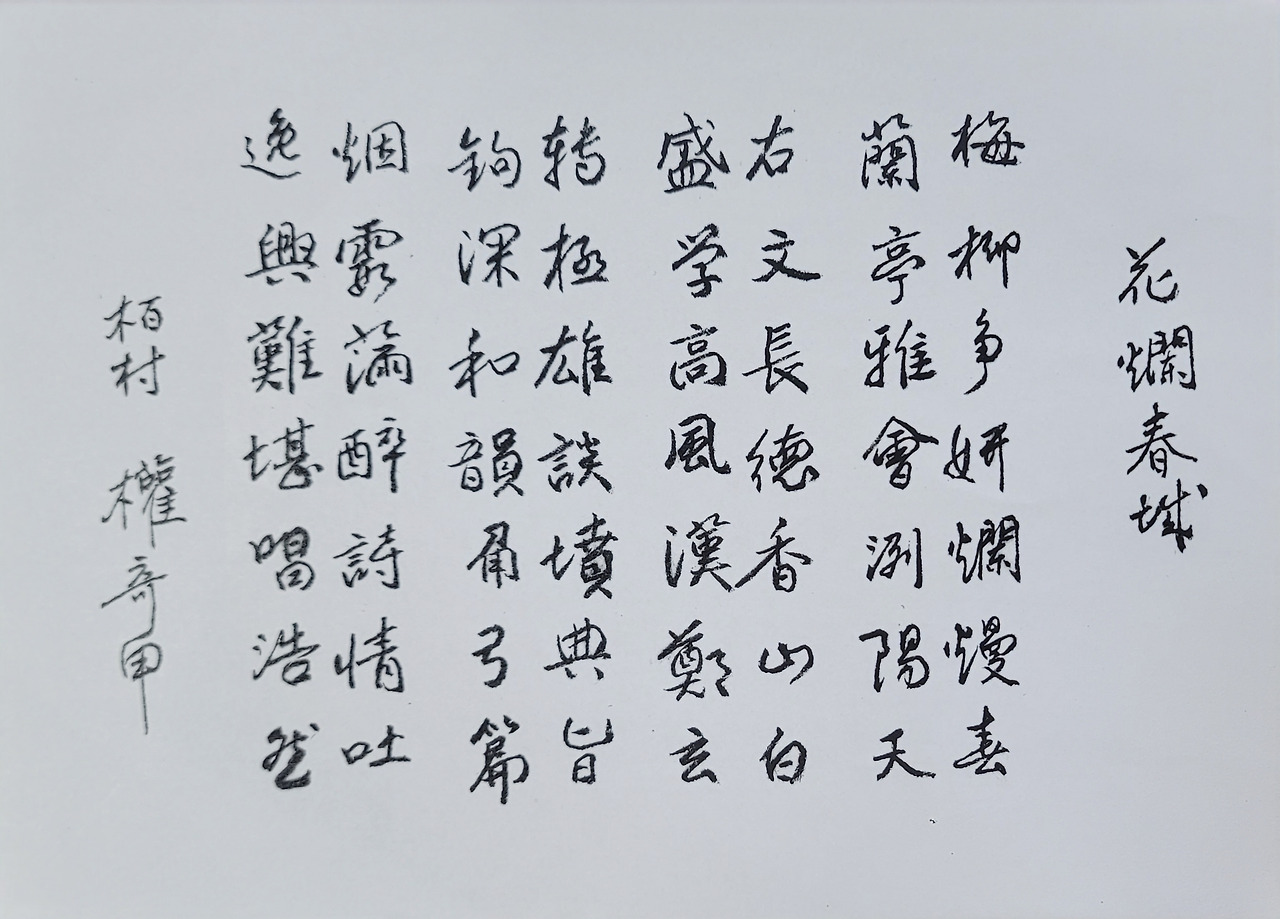 花爛春城
梅柳争妍爛熳春
蘭亭雅會洌陽天
右文長德香山白
盛学高風漢鄭玄
转極雄談墳典旨
鉤深和韻 弓篇
烟霞滿醉詩情吐
逸興難堪唱浩然
栢村 權奇甲